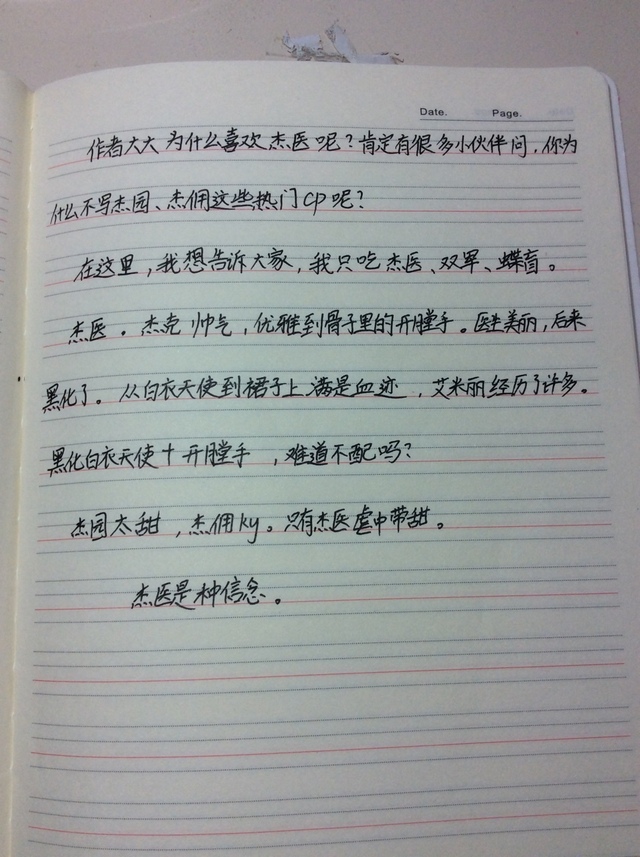 Date. Page.
作者大大为什么喜欢杰医呢？肯定有很多小伙伴问，你为
什么不写杰园、杰佣这些热门cp呢？
在这里，我想告诉大家，我只吃杰医、双军、蝶盲。
杰医。杰克帅气，优雅到骨子里的开膛手。医生美丽，后来
黑化了。从白衣天使到裙子上满是血迹，艾米丽经历了许多。
黑化白衣天使十开膛手，难道不配吗？
杰园太甜，杰佣ky。只有杰医虐中带甜。
杰医是种信念。